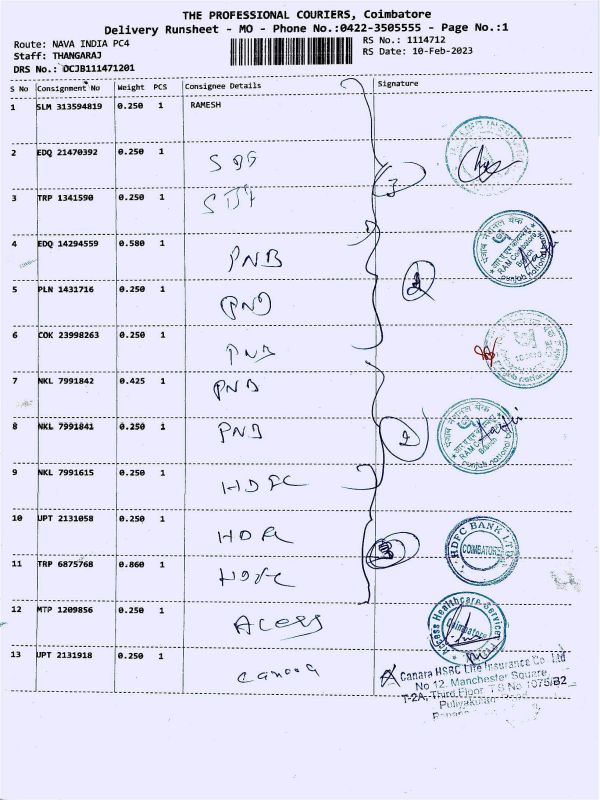 THE PROFESSIONAL COURIERS, Coimbatore
Delivery Runsheet - MO - Phone No.:0422-3505555 - Page No.:1
Route: NAVA INDIA PC4
RS No.: 1114712
Staff: THANGARAJ
RS Date: 10-Feb-2023
DRS No.: DCJB111471201
S No Consignment No Weight PCS Consignee Details Signature
1 SLM 313594819 0.250 1 RAMESH
2 EDQ 21470392 0.250 1
3 TRP 1341590 0.250 1
4 EDQ 14294559 0.580 1 PNB
5 PLN 1431716 0.250 1 PNB
6 COK 23998263 0.250 1 PNB
7 NKL 7991842 0.425 1 PNB
8 NKL 7991841 0.250 1 PNB
2
9 NKL 7991615 0.250 1 HDFC
10 UPT 2131058 0.250 1 HDFC
11 TRP 6875768 0.860 1 HDFC
HDFC BANK LTD
COIMBATORE
12 MTP 1209856 0.250 1 Acess
Access Healthcare Services
Coimbatore
13 UPT 2131918 0.250 1 canara
Canara HSBC Life Insurance Co Ltd
No 12, Manchester Square
T-2A, Third Floor T S No 1075/B2
Puliyakulam Road
पंजाब नैशनल बैंक
RAM Coimbatore
Branch
punjab national bank